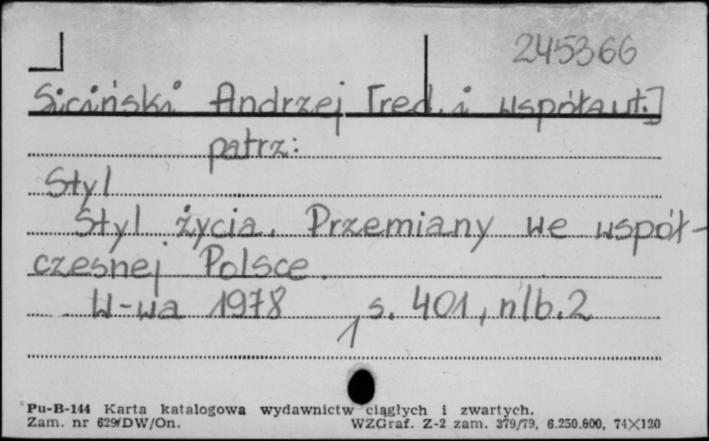 245366
Siciński Andrzej [red. i współaut.]
patrz:
Styl
Styl życia. Przemiany we współ-
czesnej Polsce.
W-wa 1978, s. 401, nlb. 2
1
Pu-B-144 Karta katalogowa wydawnictw ciągłych i zwartych.
Zam. nr 629/DW/On. WZGraf. Z-2 zam. 379/79, 6.250.600, 74×120